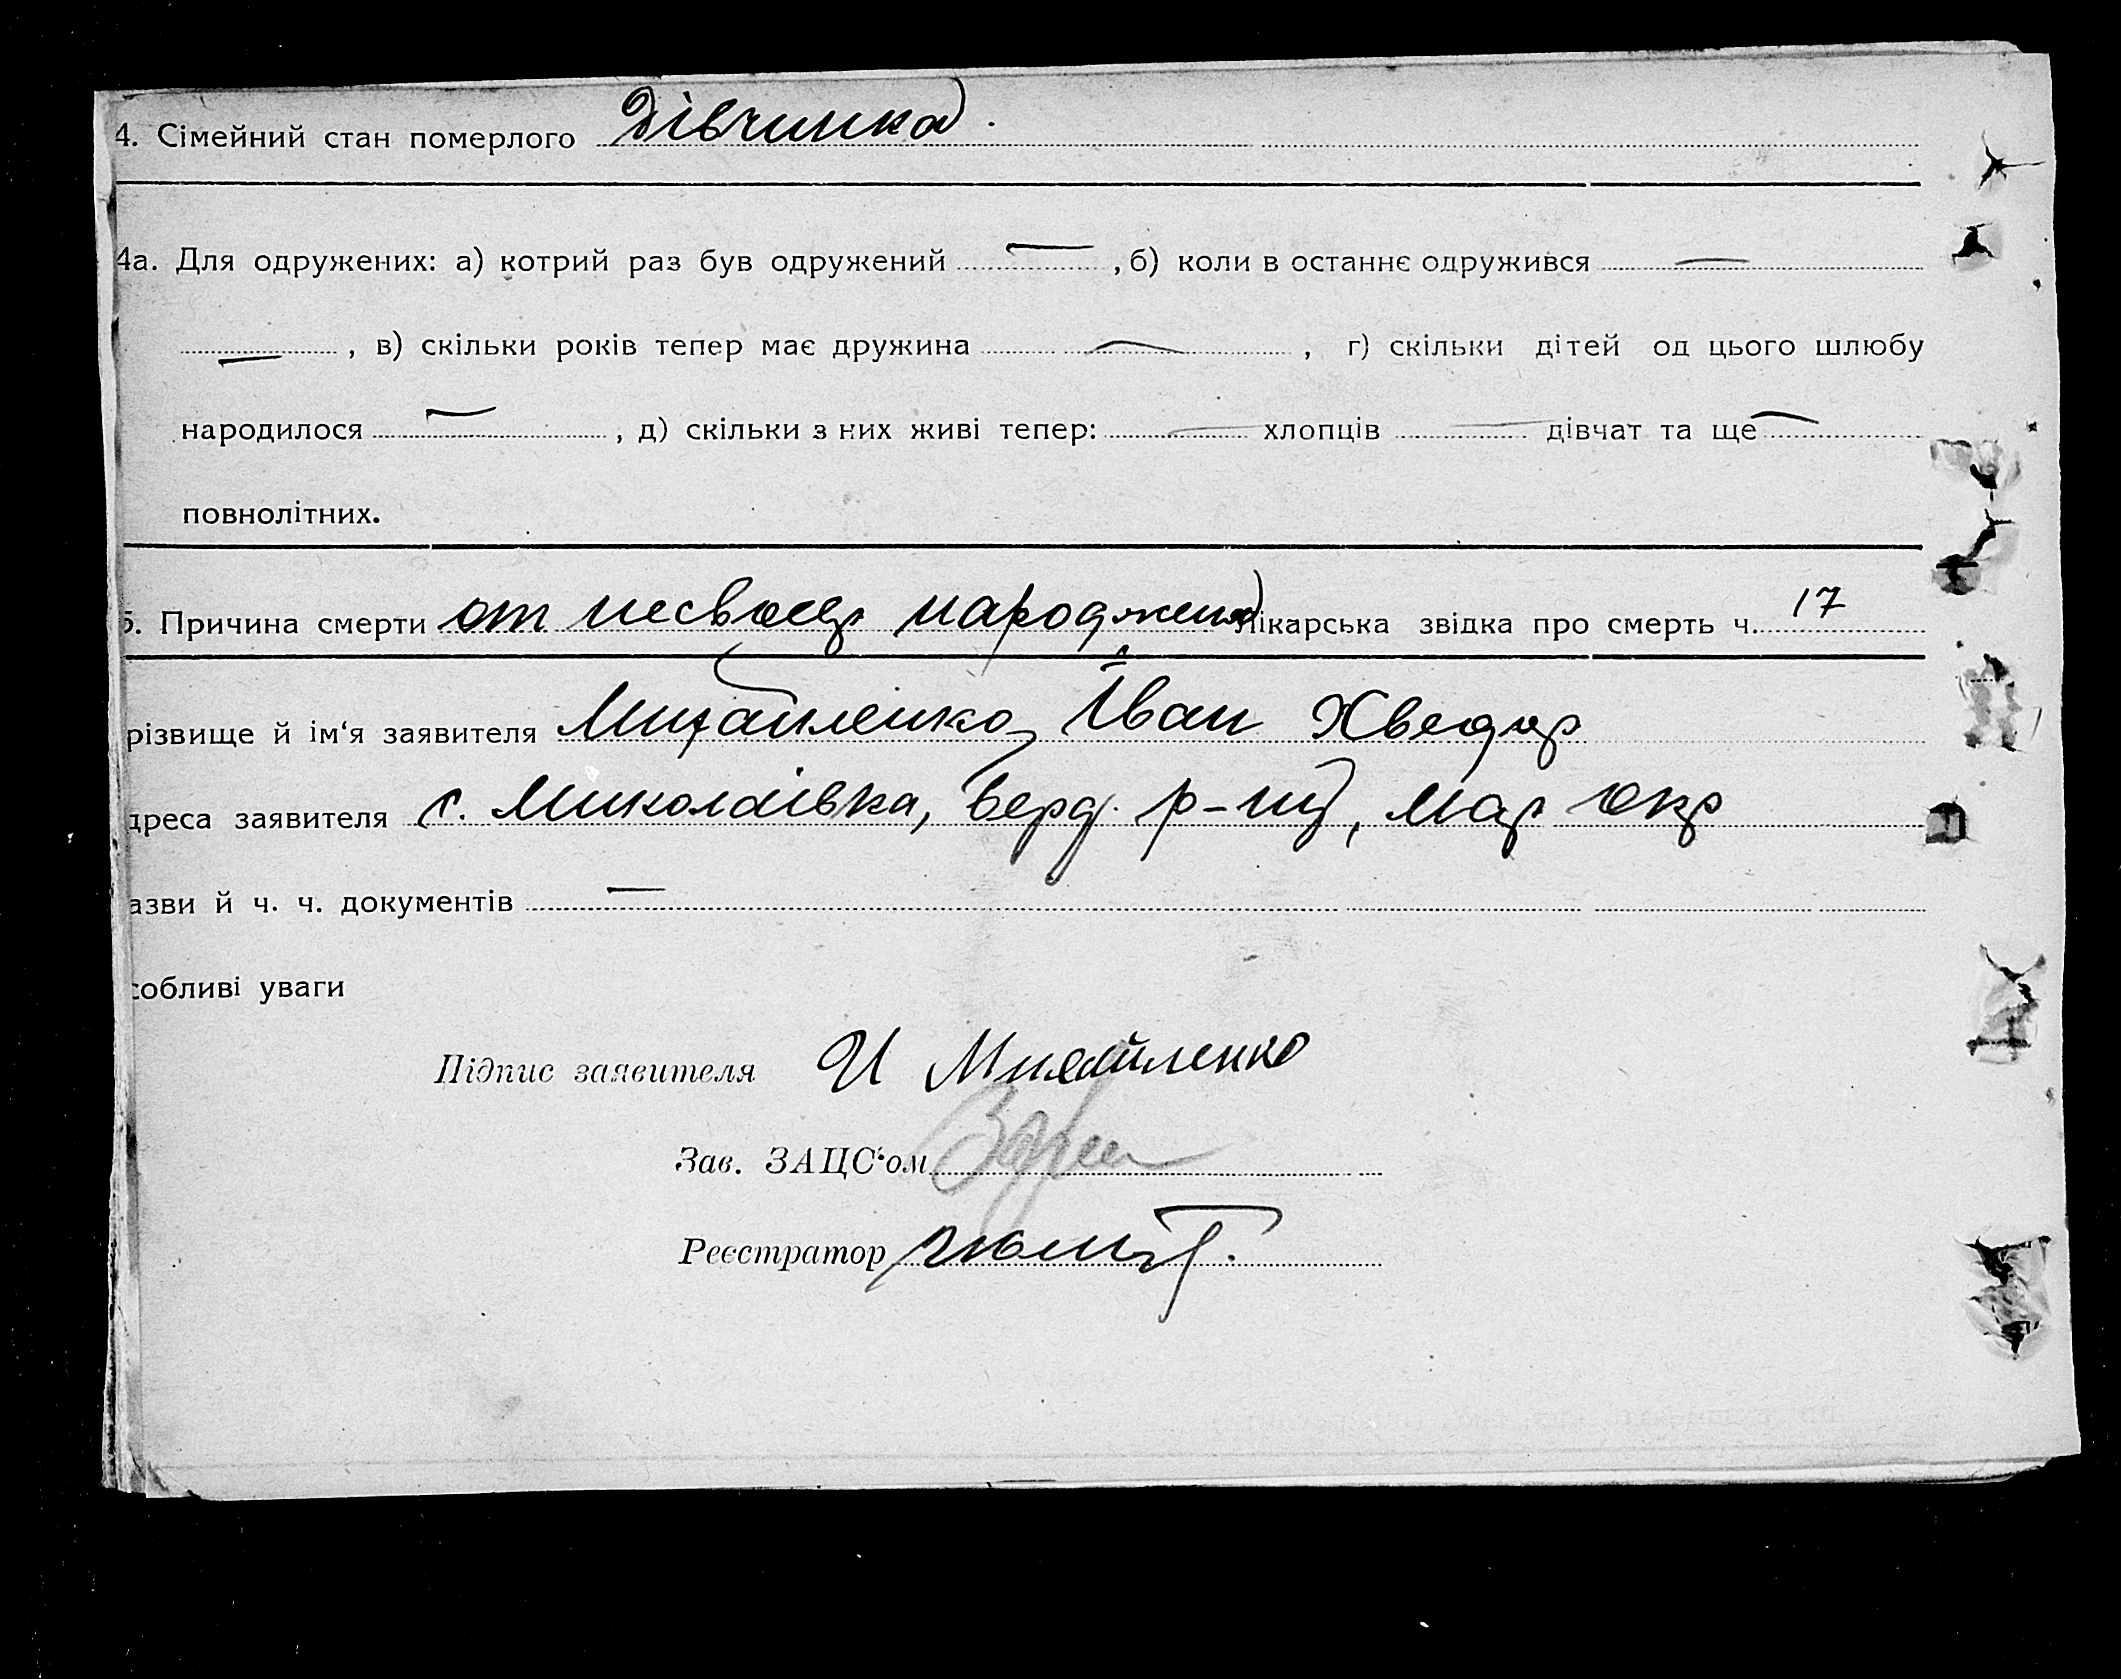 4. Сімейний стан померлого Дівчинка.
4а. Для одружених: а) котрий раз був одружений — , б) коли в останнє одружився —
— , в) скільки років тепер має дружина — , г) скільки дітей од цього шлюбу
народилося — , д) скільки з них живі тепер: — хлопців — дівчат та ще —
повнолітних.
5. Причина смерти от несвоєр народження Лікарська звідка про смерть ч. 17
різвище й ім'я заявителя Михайленко Іван Хведор
дреса заявителя с. Миколаівка, Берд. р-ну, Мар окр
азви й ч. ч. документів —
собливі уваги
Підпис заявителя И Михайленко
Зав. ЗАЦС'ом
Реєстратор